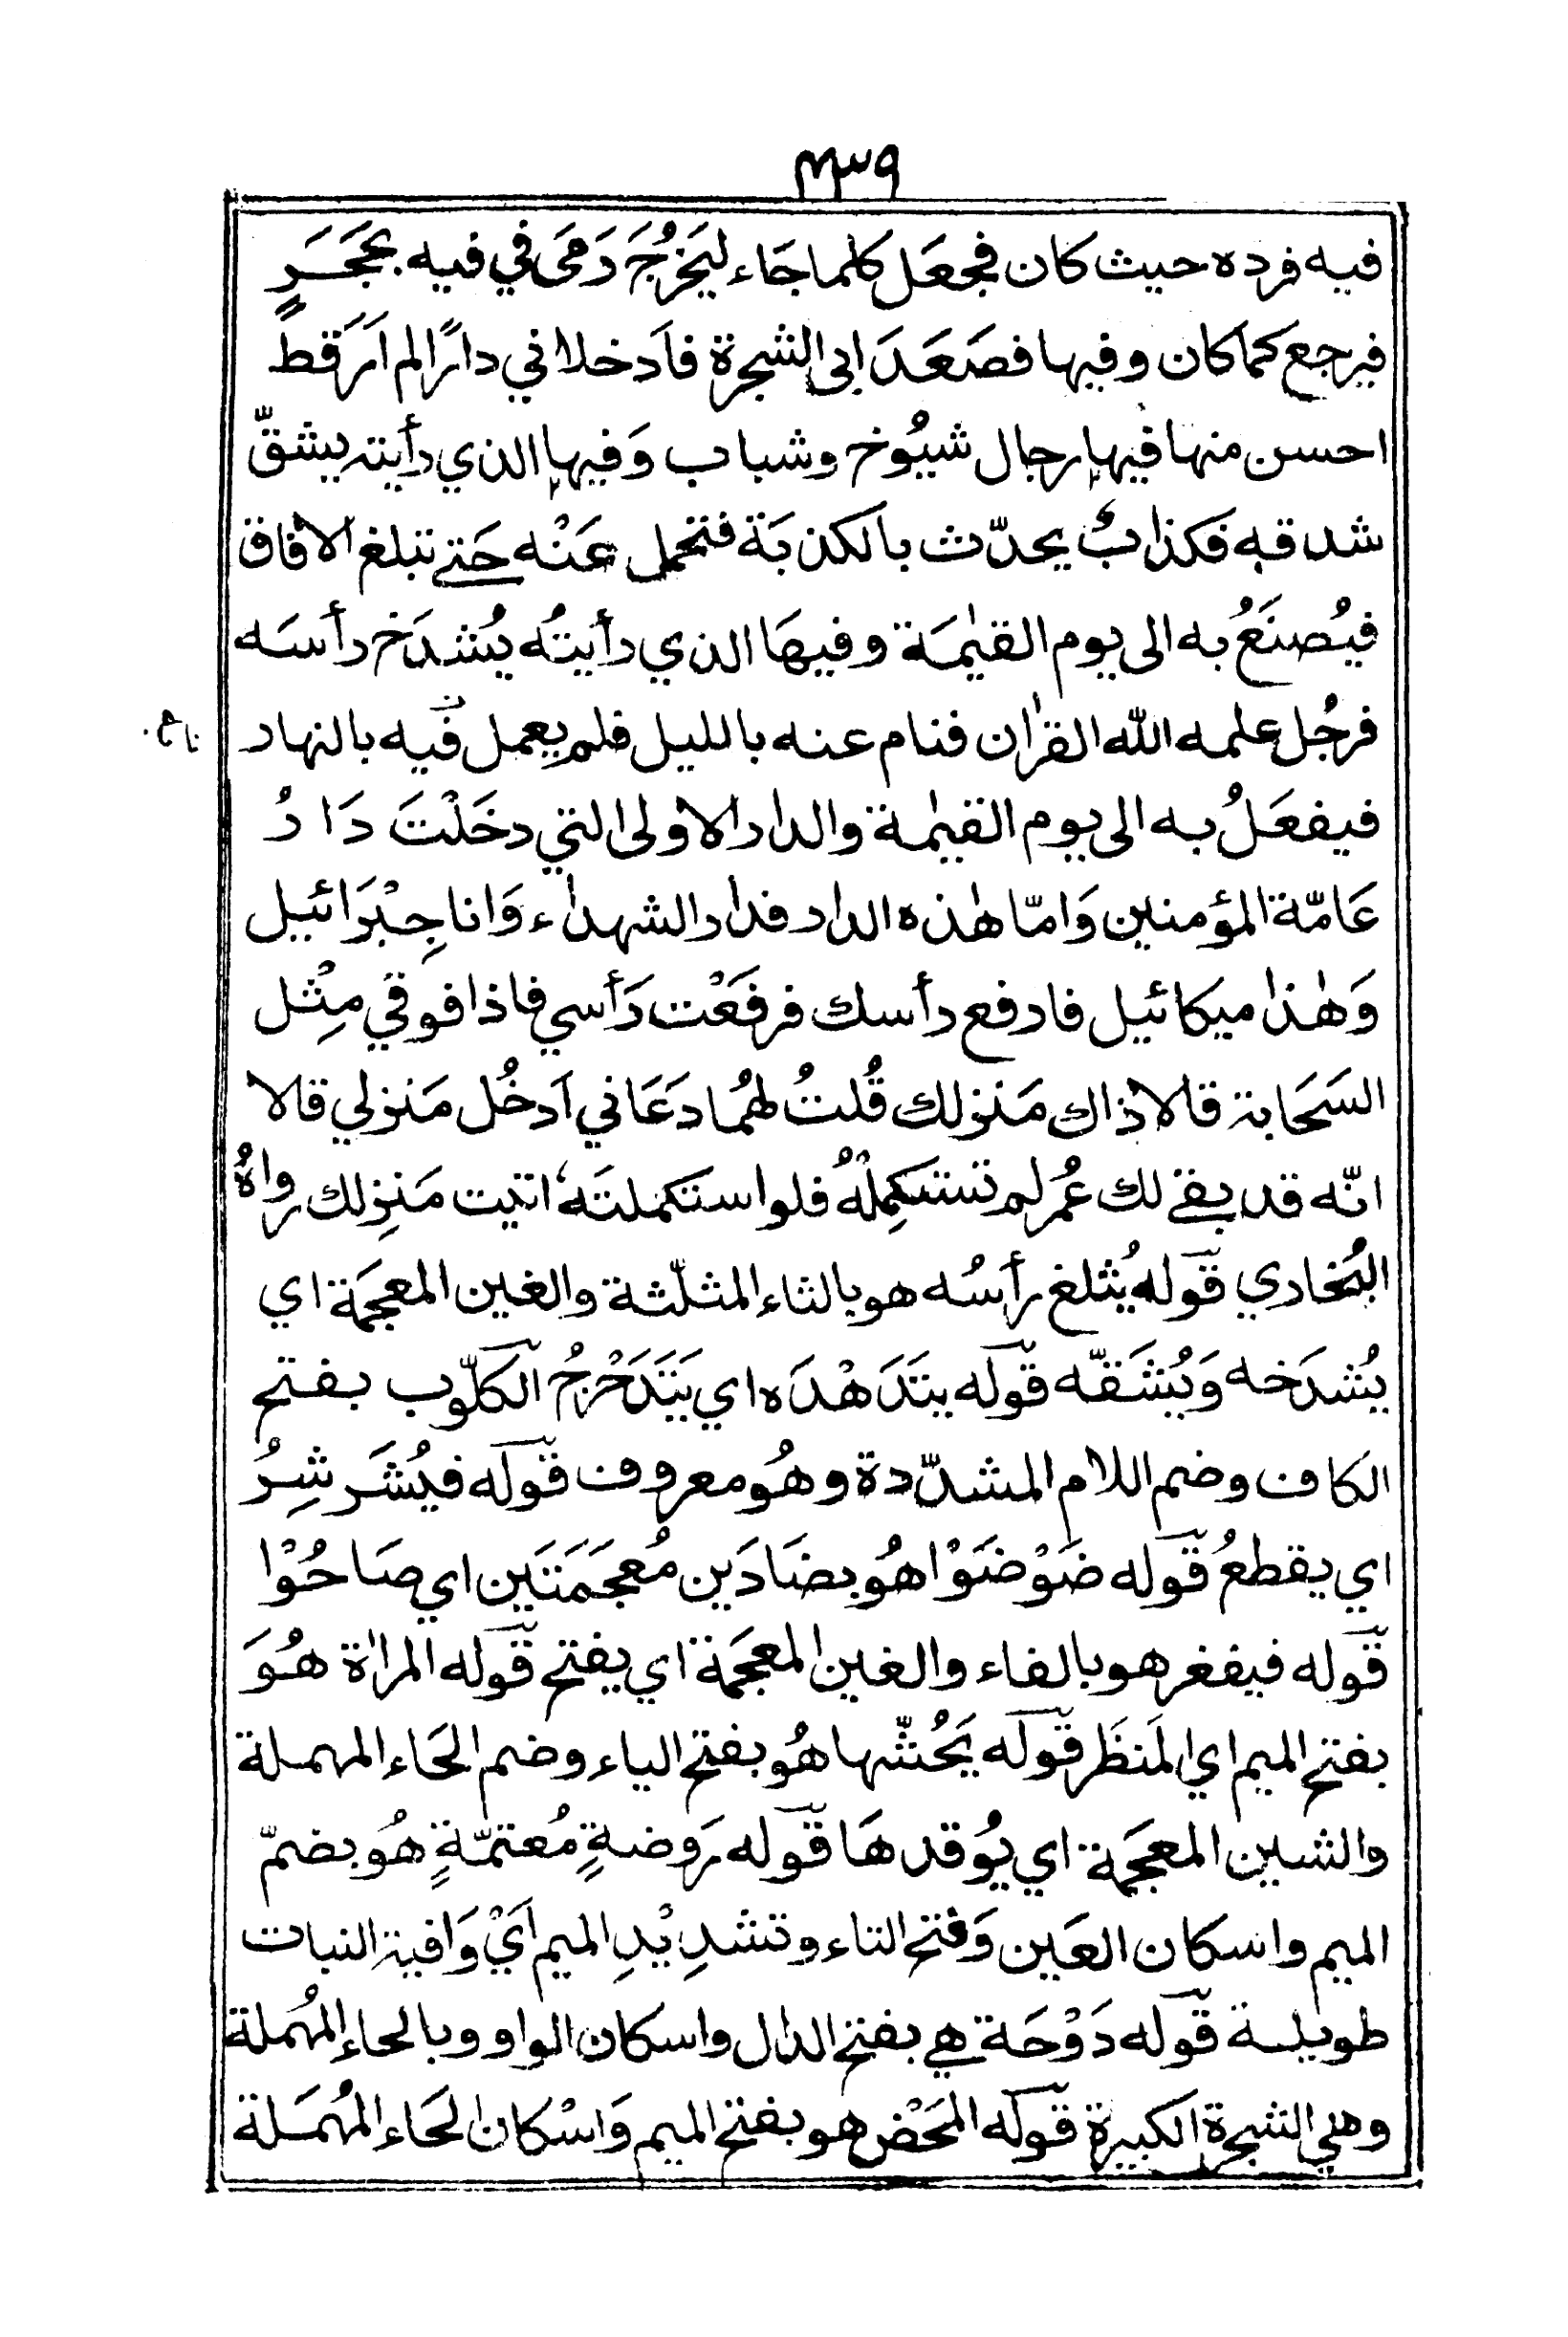 ٤٣٩
فيه فرده حيث كان فجعل كلما جَاء ليَخرُجَ رَمَى في فيه بحَجَرٍ
فيرجع كما كان وفيها فصَعَدَا بى الشجرة فاَدخلا ني دارًا لم اَرَ قط
احسن منها فيها رجال شيُوخ وشباب وَفيها الذي رأيته يشقّ
شدقه فكذابٌ يحدّث بالكذبَة فتحمل عَنْه حَتى تبلغ الافاق
فيُصنَعُ به الى يوم القيٰمَة وفيهَا الذي رأيتُه يُشدَخ رأسَه
فرجُل علمه الله القرٰان فنام عنه بالليل فلم يعمل فيه بالنهار
فيفعَلُ به الى يوم القيٰمة والدار الاولى التي دخَلْتَ دَارُ
عَامّة المؤمنين وَامّا هٰذه الدار فدار الشهداء وَانا جِبْرَائيل
وَهٰذا ميكائيل فارفع رأسك فرفَعْت رَأسي فاذا فوقي مِثْل
السَحَابة قالا ذاك مَنزلك قُلتُ لهُما دَعَاني اَدخُل مَنزلي قالا
انّه قد بقي لك عُمر لم تستكمِلْهُ فلو استكملتَهُ اتيت مَنزِلك رواهُ
البُخاري قوله يُثلغ رأسُه هو بالثاء المثلّثة والغين المعجَمة اي
يُشدَخه وَيُشَقّه قوله يتَدَهْدَه اي يَتَدَحْرَجُ الكلّوب بفتح
الكاف وضم اللام المشدّدة وهُو معروف قوله فيُشَرشِرُ
اي يقطعُ قوله ضَوْضَوْا هُو بضَادَين مُعجَمَتَين اي صَاحُوْا
قوله فيفغر هو بالفاء والغين المعجَمة اي يفتح قوله المراٰة هُوَ
بفتح الميم اي المَنظَر قوله يَحُشّها هُو بفتح الياء وضم الحَاء المهملة
والشين المعجَمة اي يُوقدهَا قوله رَوضةٍ مُعتمّةٍ هُو بضمّ
الميم واسكان العَين وَفتح التاء وتشدِيْدِ الميم اَيْ وَافية النبات
طويلة قوله دَوْحَة هي بفتح الدال واسكان الواو وبالحاء المُهملة
وهي الشجرة الكبيرة قوله المَحْض هو بفتح الميم وَاسْكان الحَاء المُهمَلة